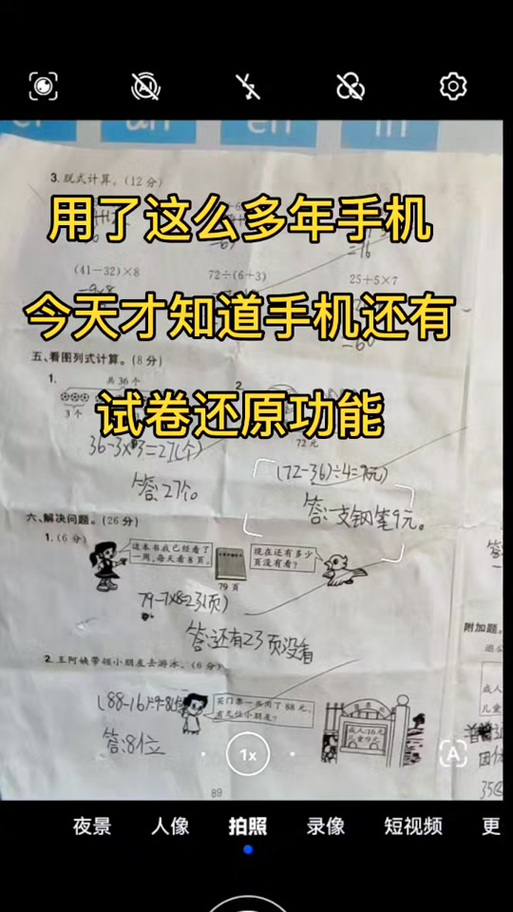 an
en
in
3. 脱式计算。(12分)
用了这么多年手机
(41-32)×8
72÷(6+3)
25+5×7
今天才知道手机还有
五、看图列式计算。(8分)
1.
2
共36个
3个
72元
试卷还原功能
36-3×3=27(个)
答:27个。
(72-36)÷4=9(元)
答:一支钢笔9元。
六、解决问题。(26分)
1.(6分)
这本书我已经看了
一周,每天看8页。
现在还有多少
页没有看?
79页
79-7×8=23(页)
答:还有23页没看
2.王阿姨带领小朋友去游泳。(6分)
买门票一共用了88元,
有几位小朋友?
成人:16元
儿童:9元
答:8位
附加题。
1x
A
89
夜景
人像
拍照
录像
短视频
更